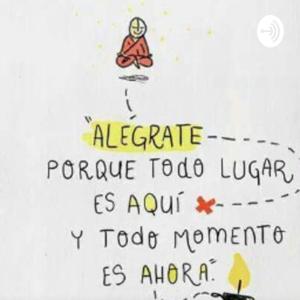 "ALÉGRATE
PORQUE TODO LUGAR
ES AQUÍ
Y TODO MOMENTO
ES AHORA."